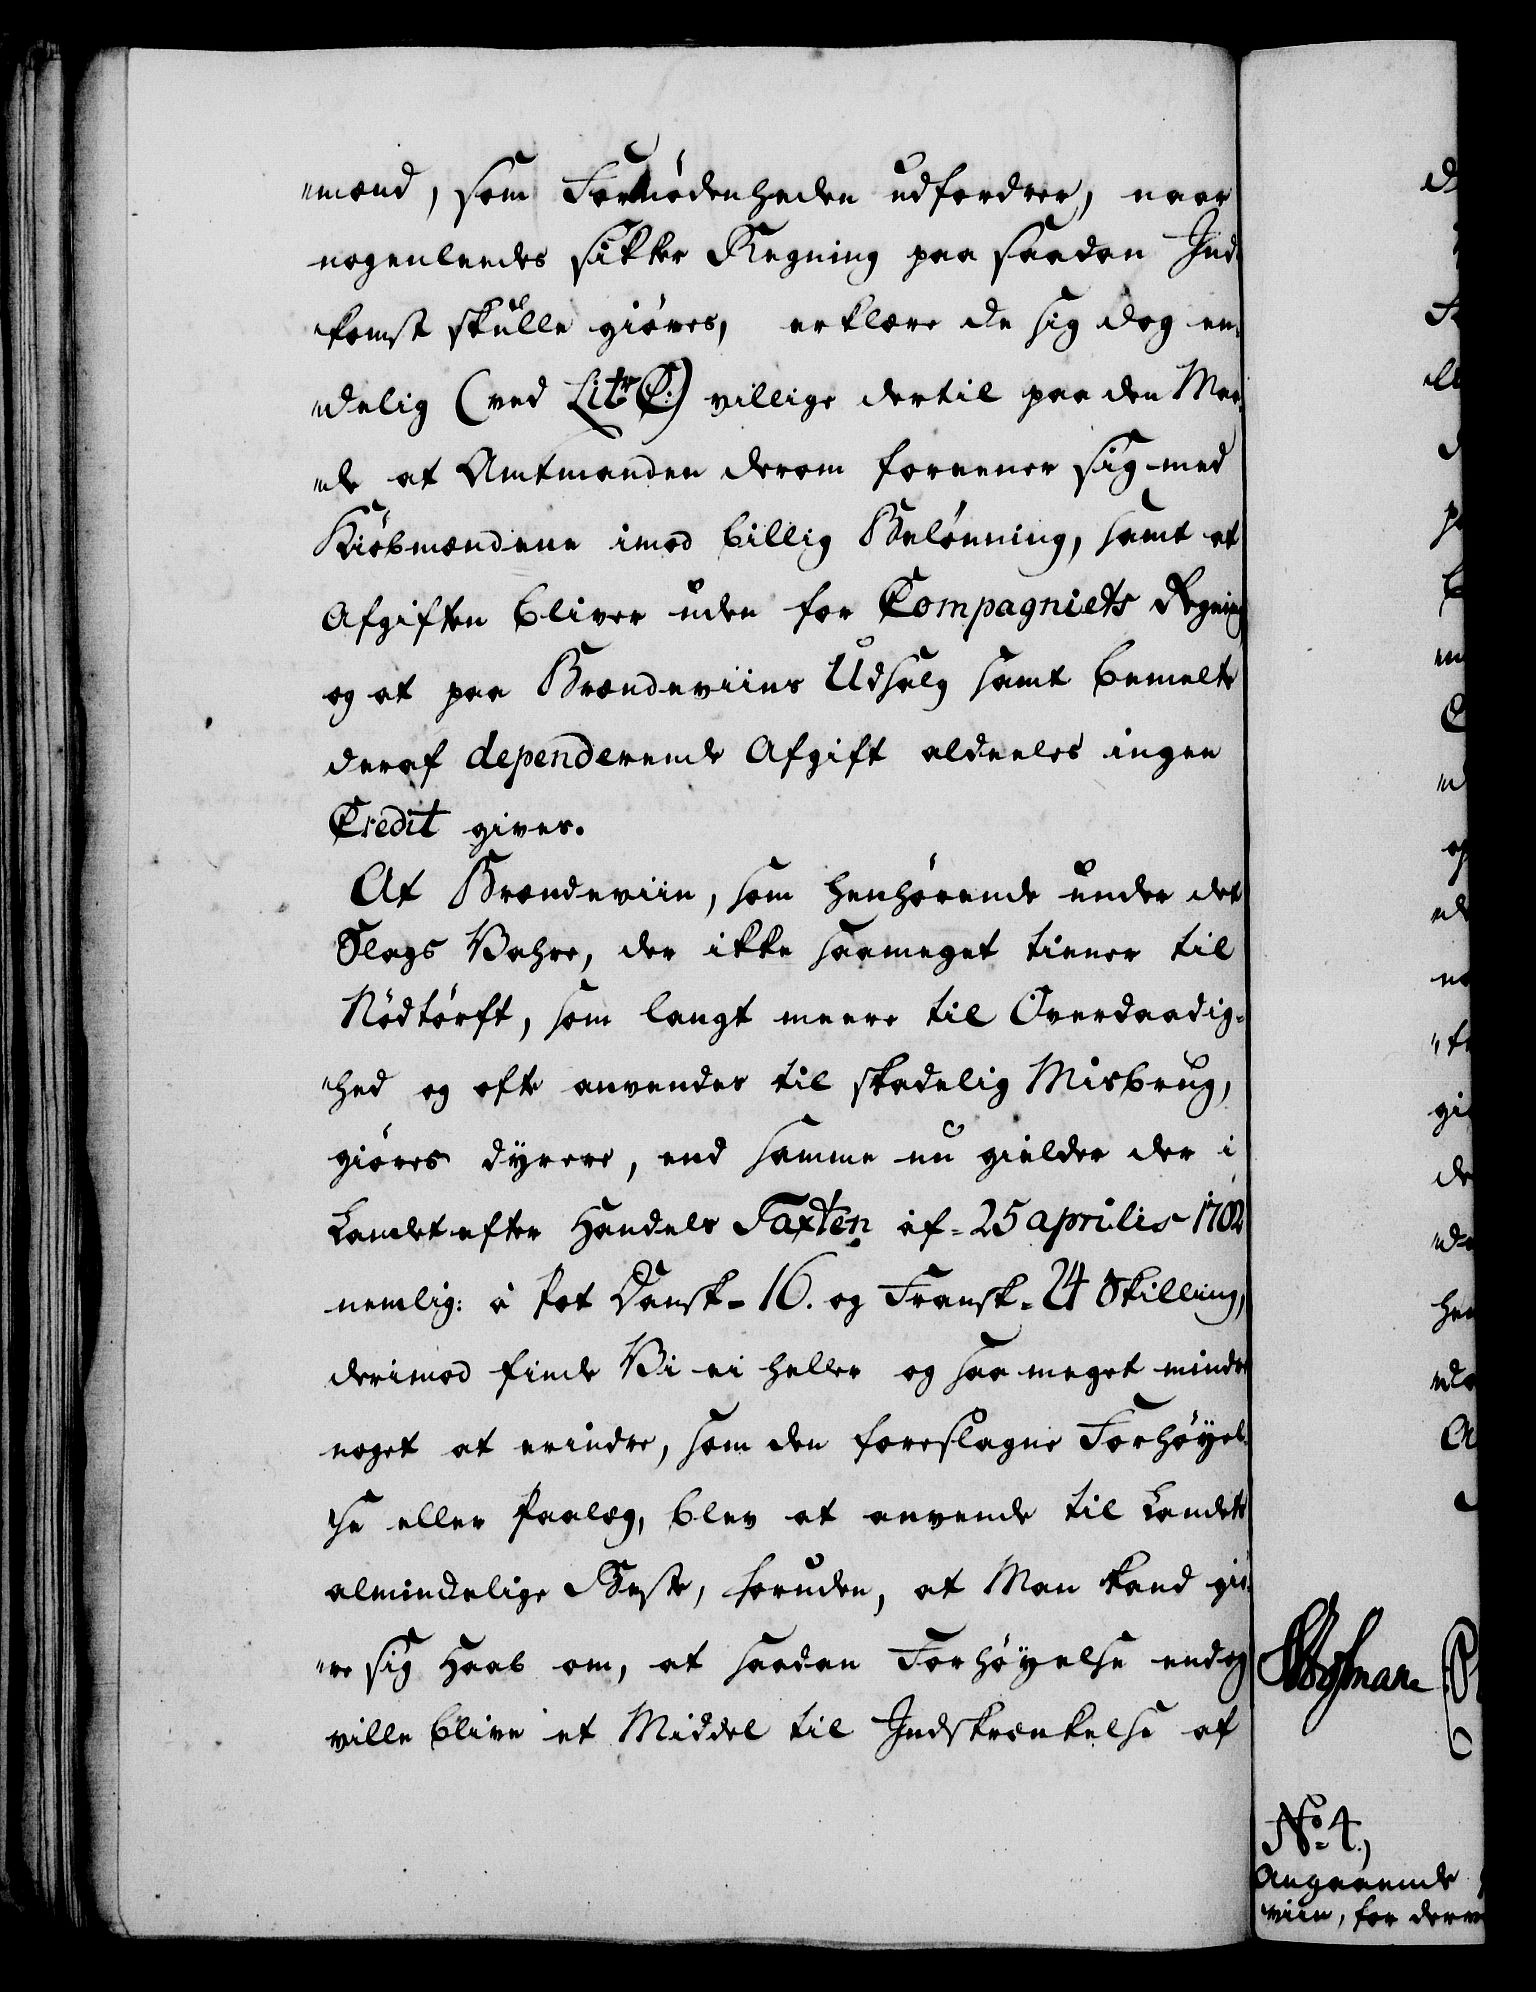 "mænd, som Fornödenheden udfordrer, naar
nogenleedes sikker Regning paa saadan Ind-
komst skulle giöres, erklære de sig dog en-
"delig (ved Litr C:) villige dertil paa den Maa-
"de at Amtmanden derom foreener sig med
Kiöbmændene imod billig Belönning, samt at
Afgiften bliver uden for Compagniets Regning
og at paa Brændeviins Udsalg samt bemelte
deraf dependerende Afgift aldeeles ingen
Credit gives.
At Brændeviin, som henhörende under det
Slags Vahre, der ikke saameget tiener til
Nödtörft, som langt meere til Overdaadig-
"hed og ofte anvendes til skadelig Misbrug,
giöres dyrere, end samme nu gielder der i
Landet efter Handels Taxten af 25 aprilis 1702
nemlig: à Pot Dansk - 16. og Fransk - 24 Skilling,
derimod finde Vi ei heller og saa meget mindre
noget at erindre, som den foreslagne Forhöyel-
se eller Paalæg, blev at anvende til Landets
almindelige Beste, foruden, at Man kand giö-
"re sig Haab om, at saadan Forhöyelse endog
ville blive et Middel til Indskrænkelse af
No 4,
Angaaende
viin, for derv